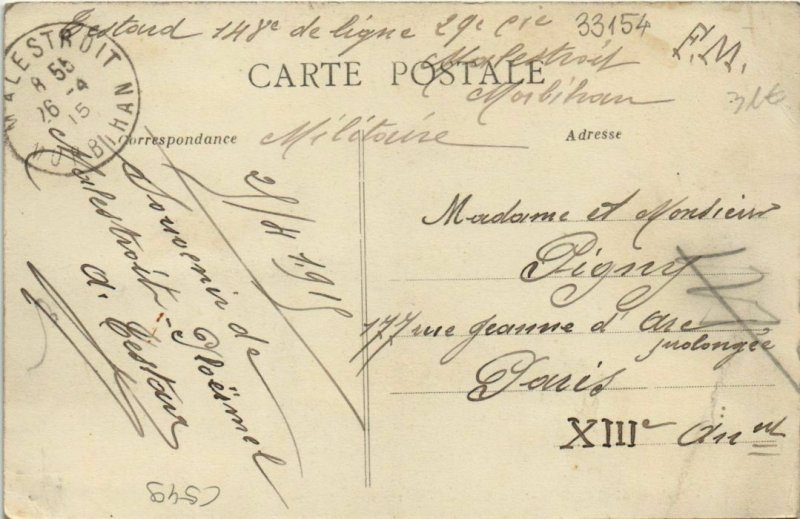 Testard 148e de ligne 29e Cie 33154
F.M.
Malestroit
CARTE POSTALE
Morbihan
MALESTROIT
8 55
26 -4
15
MORBIHAN
Correspondance
Militaire
Adresse
25/4 1915
Souvenir de Ploërmel
Malestroit
A. Testard
Madame et Monsieur
Pigny
177 rue Jeanne d'Arc
prolongée
Paris
XIIIe Arrnt
C549